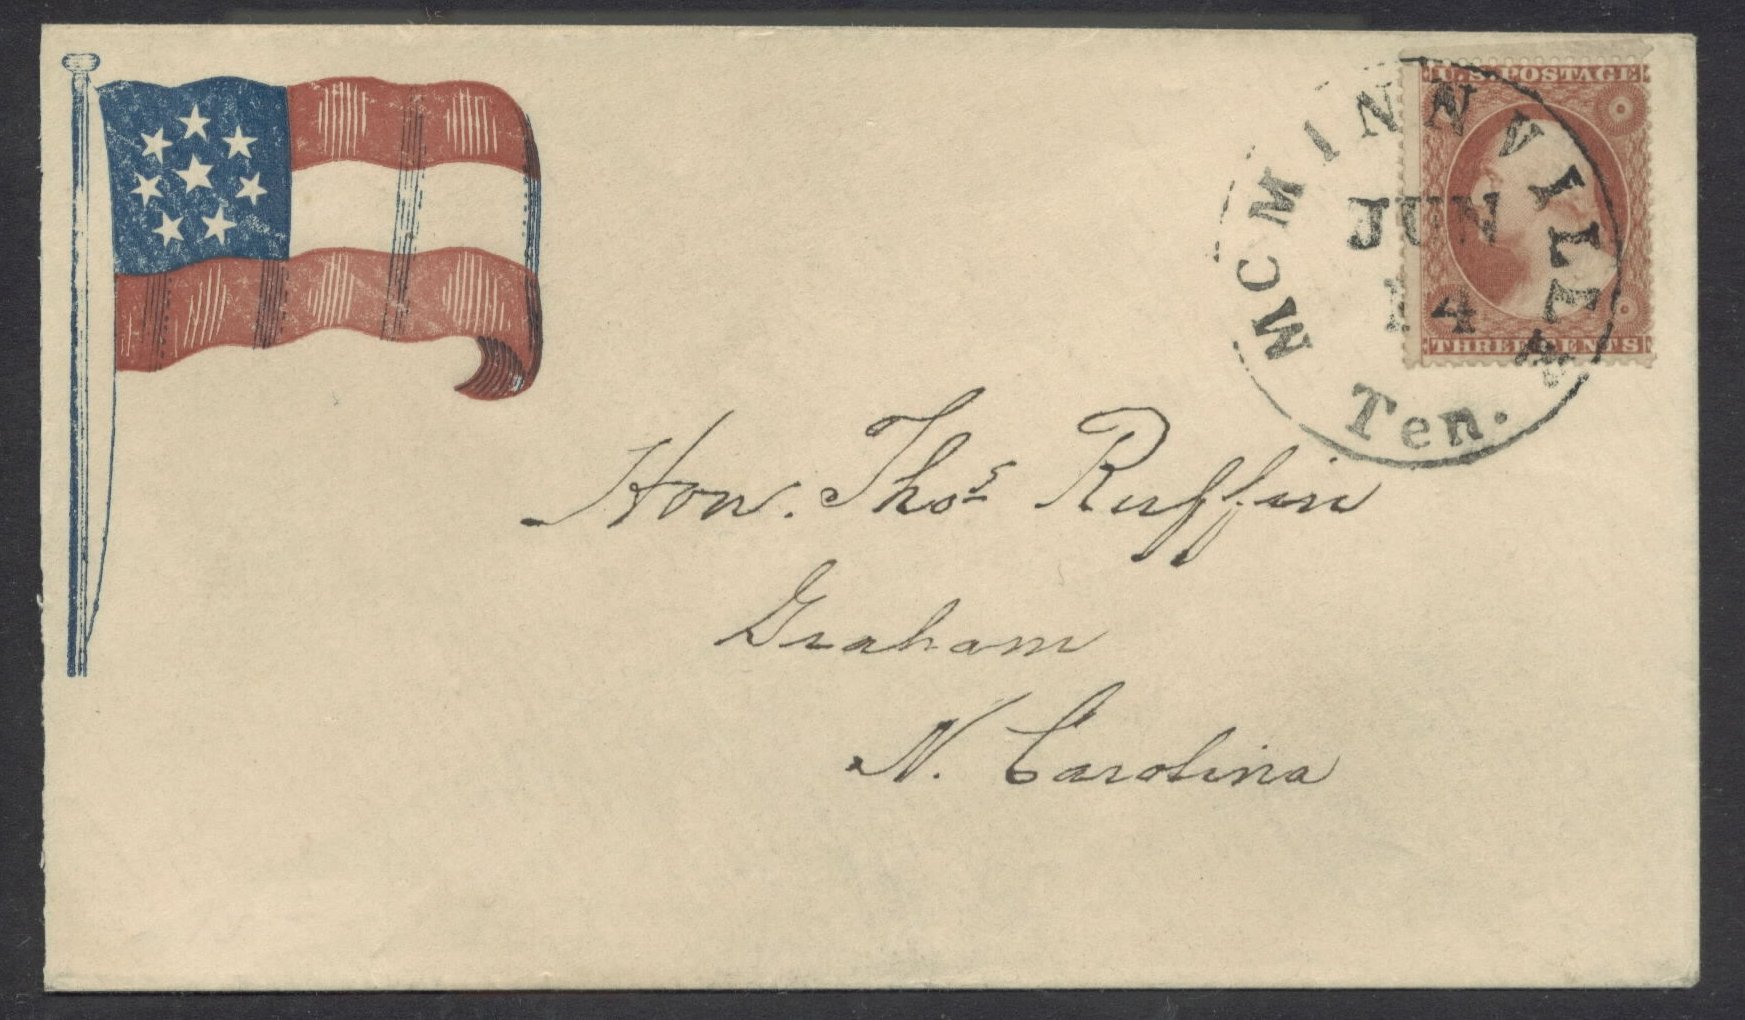 U.S. POSTAGE
THREE CENTS
MCMINNVILLE
JUN
14
Ten.
Hon. Thos Ruffin
Graham
N. Carolina